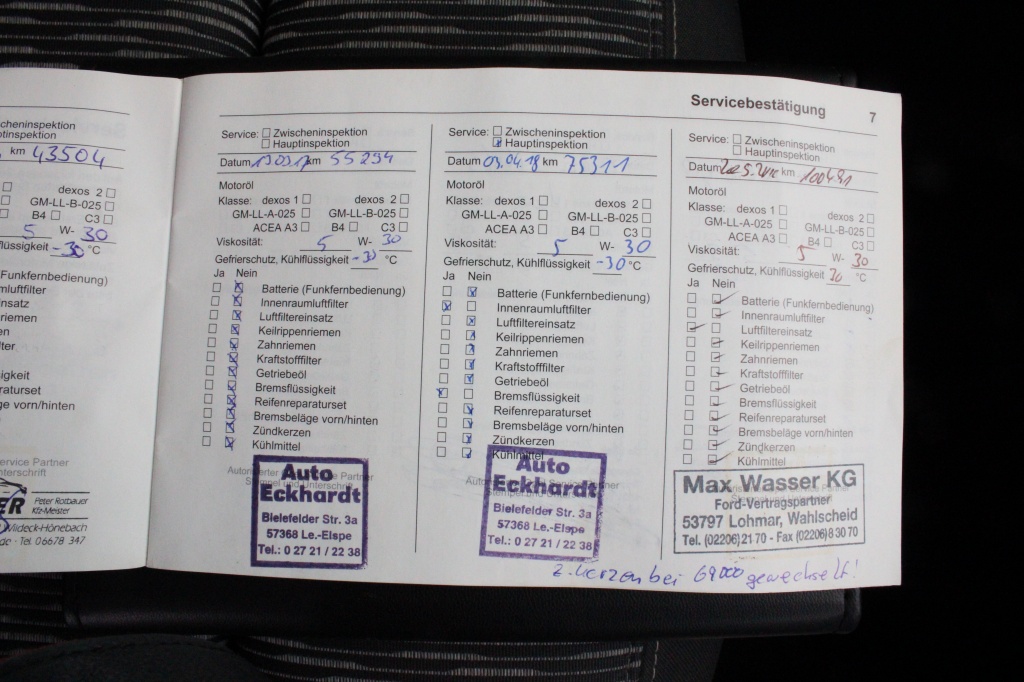 Servicebestätigung 7
km 43504
dexos 2
GM-LL-B-025
B4 C3
5 W- 30
-30 °C
Peter Rotbauer
Kfz-Meister
Tel. 06678 347
Service: Zwischeninspektion
Hauptinspektion
Datum 13.03.17 km 55234
Motoröl
Klasse: dexos 1 dexos 2
GM-LL-A-025 GM-LL-B-025
ACEA A3 B4 C3
Viskosität: 5 W- 30
Gefrierschutz, Kühlflüssigkeit -30 °C
Ja Nein
Batterie (Funkfernbedienung)
Innenraumluftfilter
Luftfiltereinsatz
Keilrippenriemen
Zahnriemen
Kraftstofffilter
Getriebeöl
Bremsflüssigkeit
Reifenreparaturset
Bremsbeläge vorn/hinten
Zündkerzen
Kühlmittel
Auto
Eckhardt
Bielefelder Str. 3a
57368 Le.-Elspe
Tel.: 0 27 21 / 22 38
Service: Zwischeninspektion
Hauptinspektion
Datum 03.04.18 km 75311
Motoröl
Klasse: dexos 1 dexos 2
GM-LL-A-025 GM-LL-B-025
ACEA A3 B4 C3
Viskosität: 5 W- 30
Gefrierschutz, Kühlflüssigkeit -30 °C
Ja Nein
Batterie (Funkfernbedienung)
Innenraumluftfilter
Luftfiltereinsatz
Keilrippenriemen
Zahnriemen
Kraftstofffilter
Getriebeöl
Bremsflüssigkeit
Reifenreparaturset
Bremsbeläge vorn/hinten
Zündkerzen
Kühlmittel
Auto
Eckhardt
Bielefelder Str. 3a
57368 Le.-Elspe
Tel.: 0 27 21 / 22 38
Service: Zwischeninspektion
Hauptinspektion
Datum km
Motoröl
Klasse: dexos 1 dexos 2
GM-LL-A-025 GM-LL-B-025
ACEA A3 B4 C3
Viskosität: 5 W- 30
Gefrierschutz, Kühlflüssigkeit °C
Ja Nein
Batterie (Funkfernbedienung)
Innenraumluftfilter
Luftfiltereinsatz
Keilrippenriemen
Zahnriemen
Kraftstofffilter
Getriebeöl
Bremsflüssigkeit
Reifenreparaturset
Bremsbeläge vorn/hinten
Zündkerzen
Kühlmittel
Max Wasser KG
Ford-Vertragspartner
53797 Lohmar, Wahlscheid
Tel. (02206) 21 70 - Fax (02206) 8 30 70
Z.kerzen bei 69000 gewechselt!